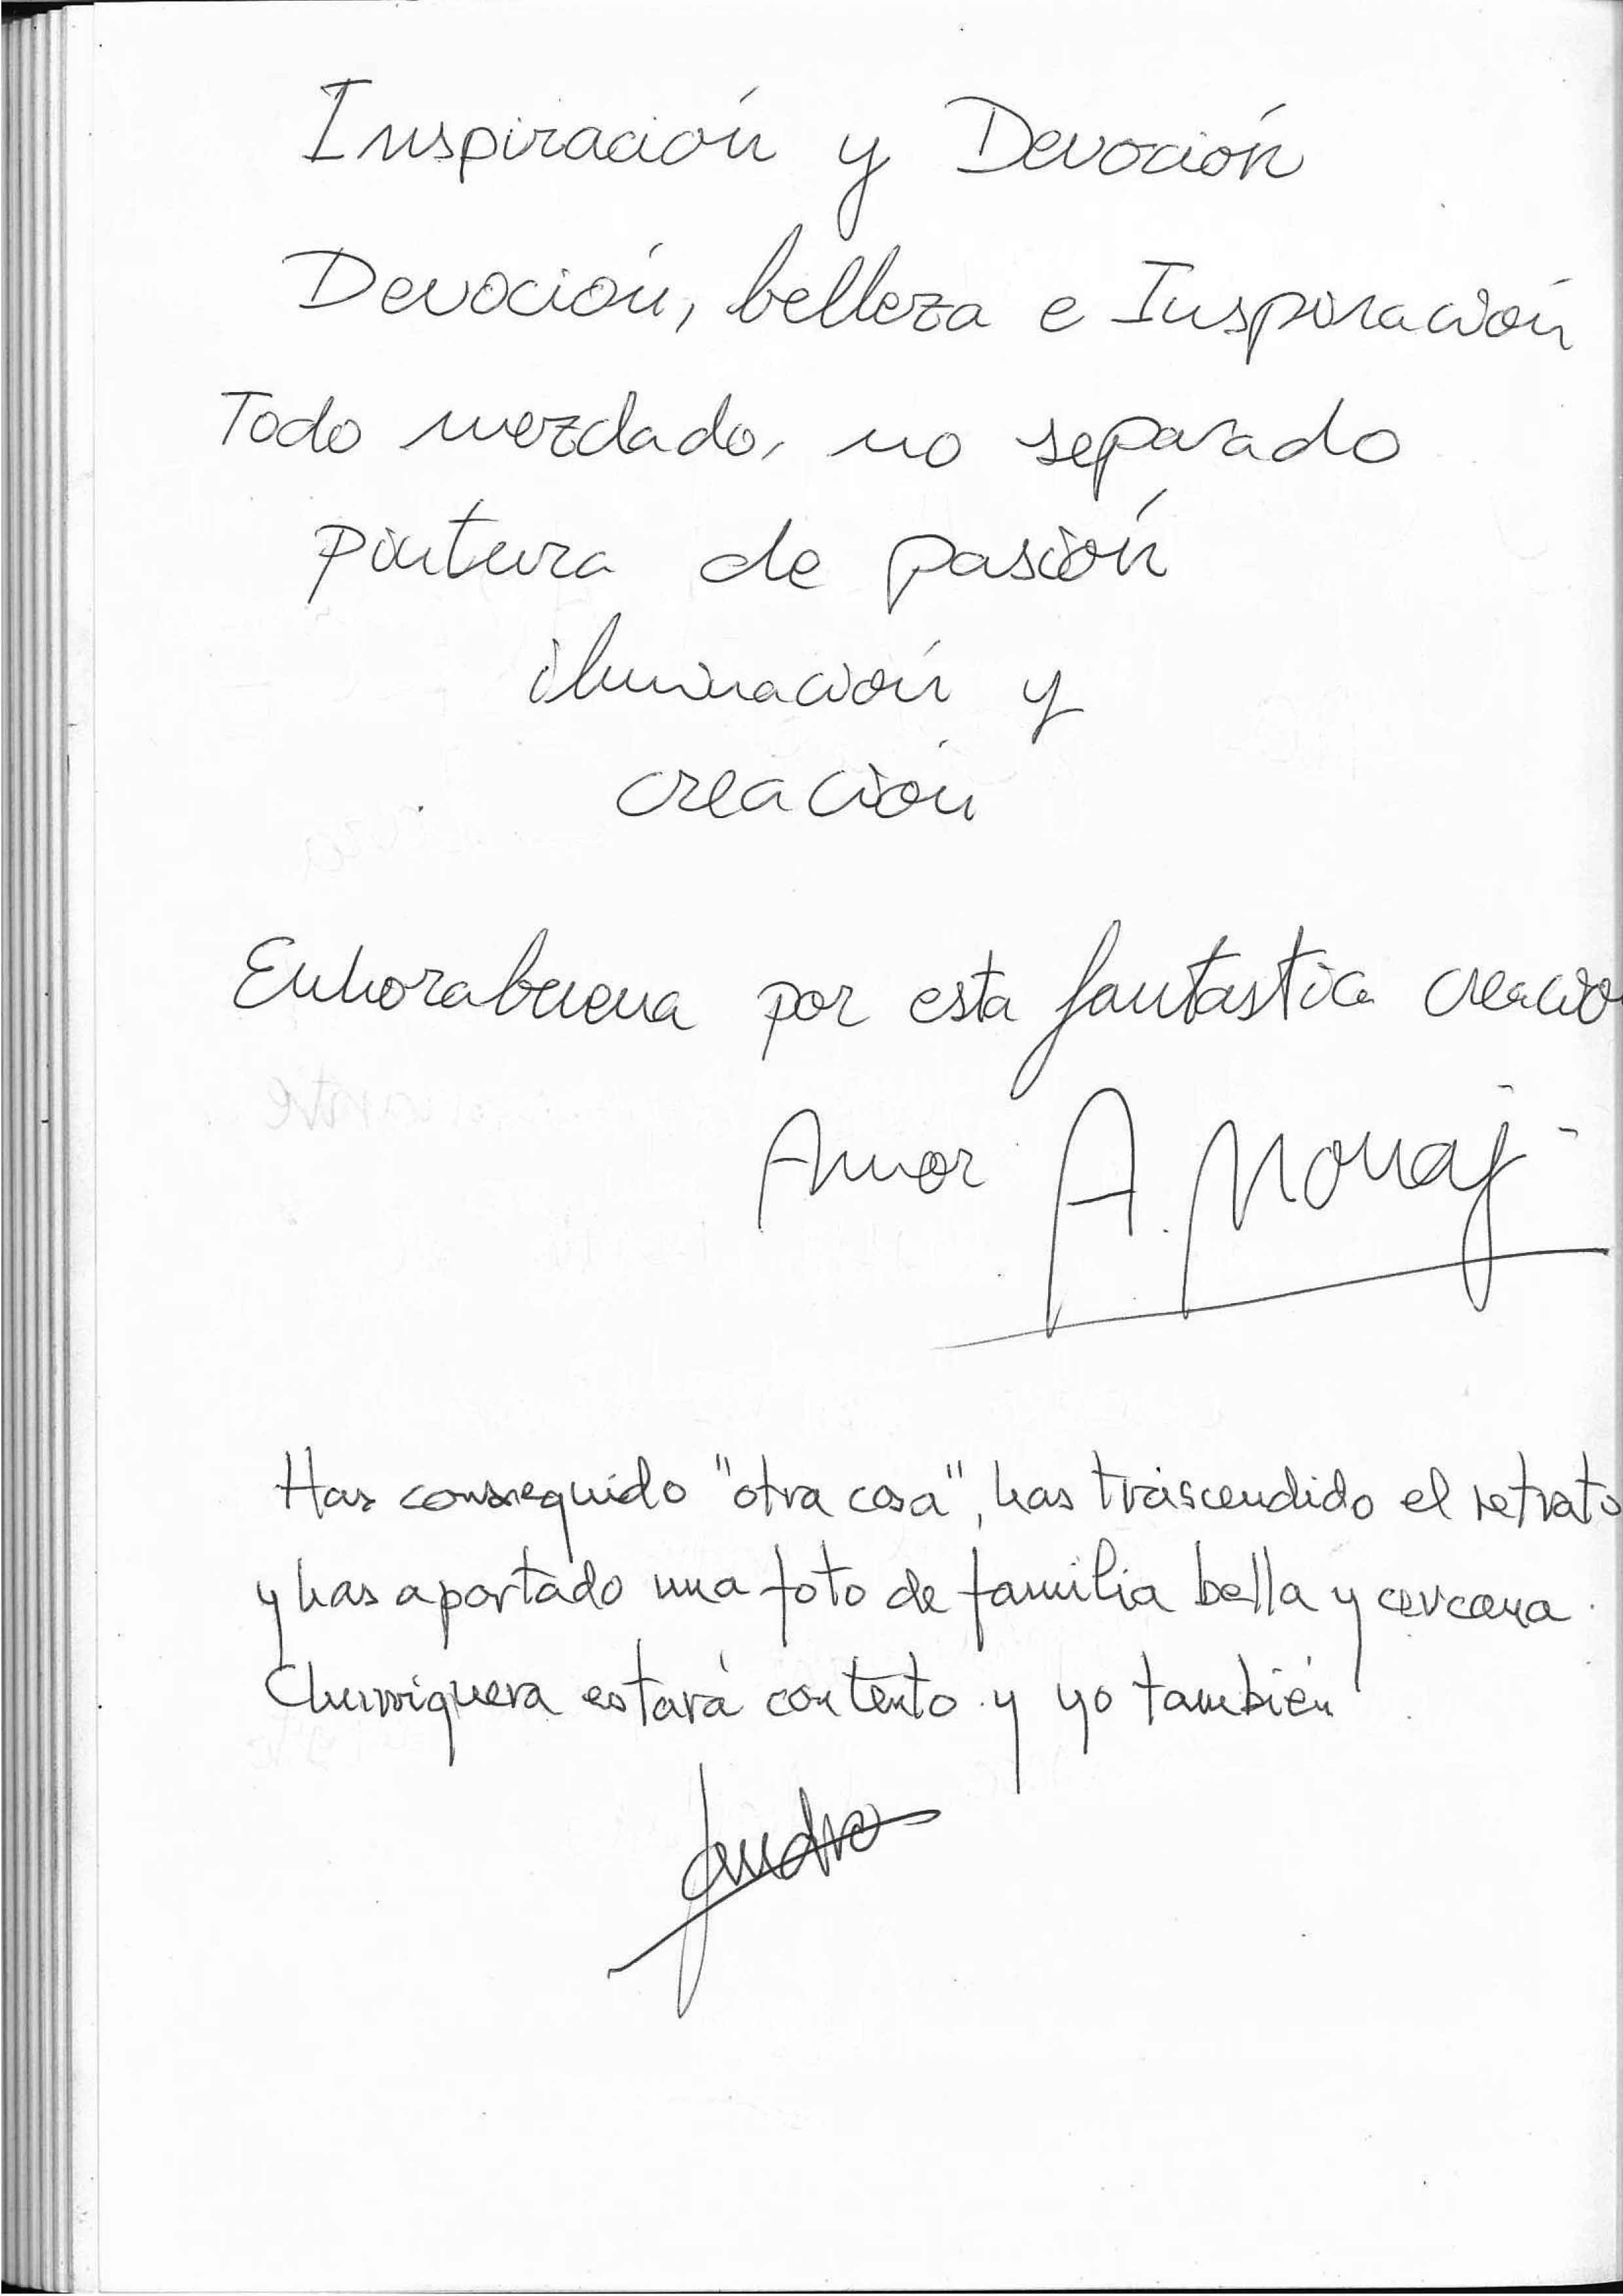 Inspiración y Devoción
Devoción, belleza e Inspiración
Todo mezclado, no separado
pintura de pasión
iluminación y
creación
Enhorabuena por esta fantastica creacio
Amor A. Monaj
Has conseguido "otra cosa", has trascendido el retrato
y has aportado una foto de familia bella y cercana.
Churriguera estará contento y yo también